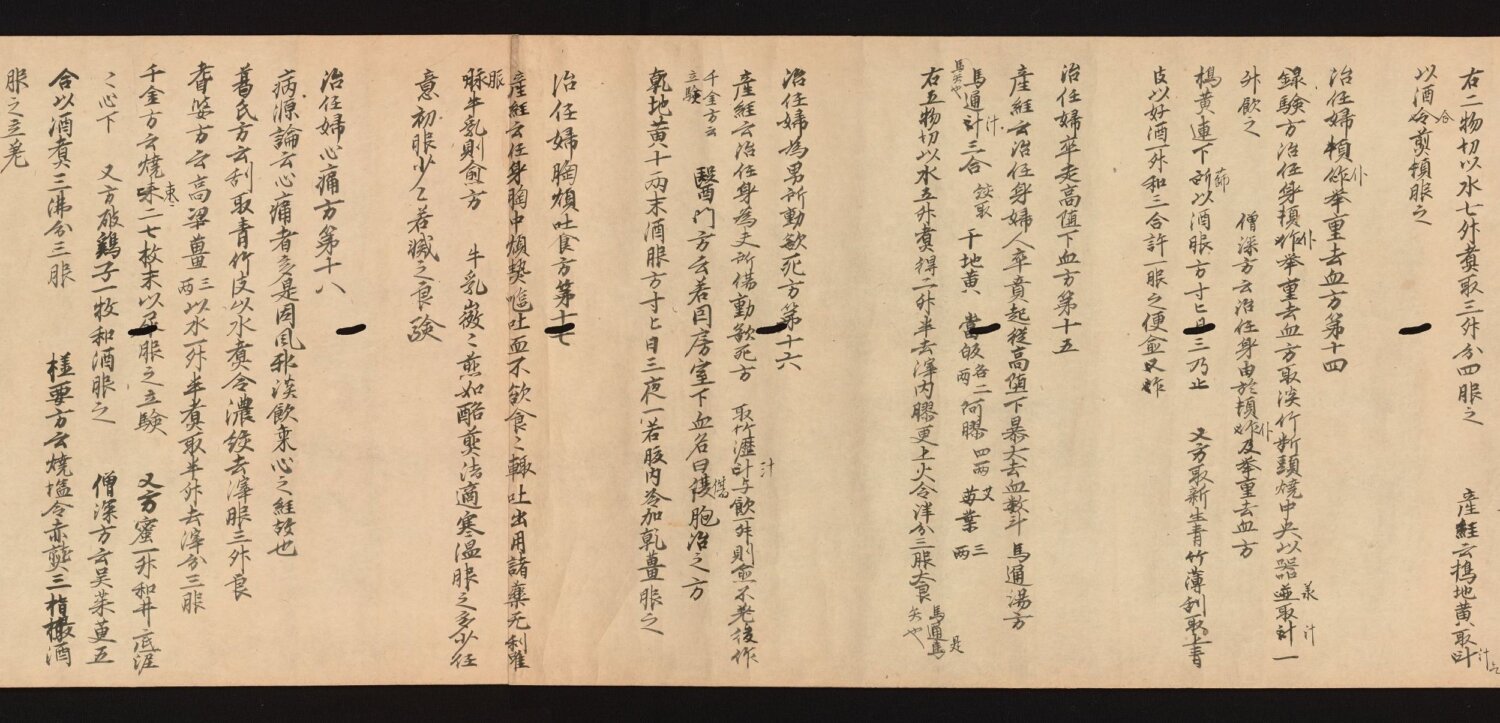 右二物切以水七升煮取三升分四服之　産経云搗地黄取汁
以酒合煎頓服之
治任婦頓仆举重去血方第十四
録験方治任身頓仆举重去血方取淡竹断頭燒中央以器盛取汁一
升飲之　僧深方云治任身由於頓仆及举重去血方
搗黄連下篩以酒服方寸匕日三乃止　又方取新生青竹薄刮取上青
皮以好酒一升和三合許一服之便愈又作
治任婦卒走高堕下血方第十五
産経云治任身婦人卒賁起従高堕下暴大去血数斗 馬通湯方
馬通汁三合 絞取　干地黄 當皈各二両 阿膠四両 艾葉三両
馬矢也
右五物切以水五升煮得二升半去滓内膠更上火令洋分三服大良 馬通是馬矢也
治任婦為男所動欲死方第十六
産経云治任身為夫所傷動欲死方　取竹瀝汁与飲一升則愈不差後作
千金方云立験　醫门方云若因房室下血名曰傷胞治之方
乾地黄十両末酒服方寸匕日三夜一若腹内冷加乾薑服之
治任婦胸煩吐食方第十七
産経云任身胸中煩熱嘔吐血不欲食々輙吐出用諸藥无利唯
服牛乳則愈方　牛乳微々煎如酪煎法適寒温服之多少任
意初服少々若減之良験
治任婦心痛方第十八
病源論云心痛者多是因風邪淡飲乗心之経故也
葛氏方云刮取青竹皮以水煮令濃絞去滓服三升良
耆婆方云高梁薑三両以水一升半煮取半升去滓分三服
千金方云燒棗二七枚末以尿服之立験　又方蜜一升和井底泥
〻心下　又方破鷄子一牧和酒服之　僧深方云吴茱萸五
合以酒煮三沸分三服　極要方云燒塩令赤熱三指撮酒
服之立差